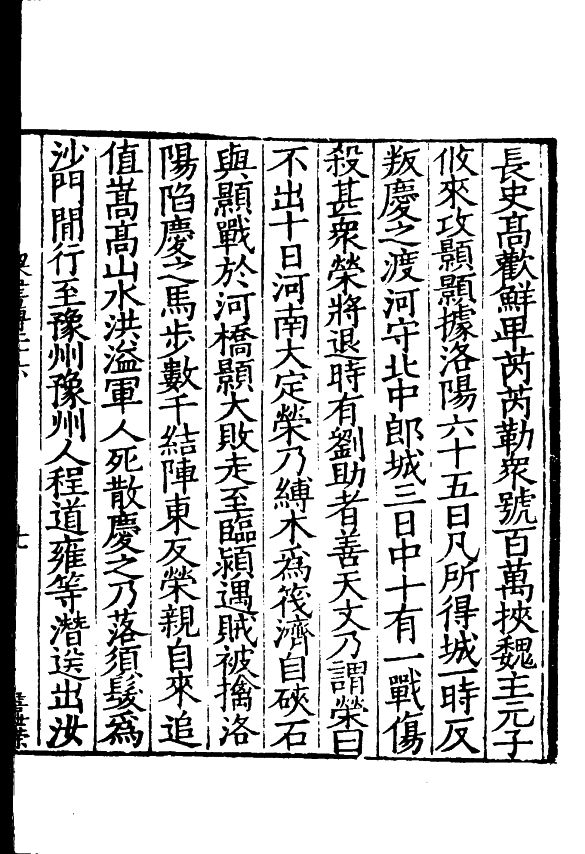 長史高歡鮮卑芮芮勒衆號百萬挾魏主元子
攸來攻顥顥據洛陽六十五日凡所得城一時反
叛慶之渡河守北中郎城三日中十有一戰傷
殺甚衆榮將退時有劉助者善天文乃謂榮曰
不出十日河南大定榮乃縛木爲筏濟自硤石
與顥戰於河橋顥大敗走至臨潁遇賊被擒洛
陽陷慶之馬步數千結陣東反榮親自來追
值嵩高山水洪溢軍人死散慶之乃落須髮爲
沙門間行至豫州豫州人程道雍等潛送出汝